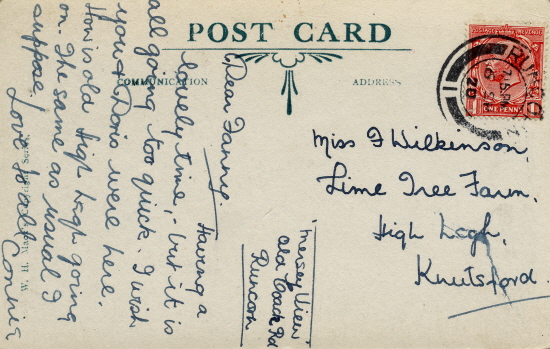 POST CARD
COMMUNICATION
ADDRESS
Dear Fanny.
Having a
lovely time,- but it is
all going too quick. I wish
you & Doris were here.
How is old High Legh going
on. The same as usual I
suppose!
Love to all
Connie
"Mersey View"
Old Coach Rd
Runcorn
Miss F Wilkinson,
Lime Tree Farm,
High Legh,
Knutsford.
ONE PENNY
W. H. S.